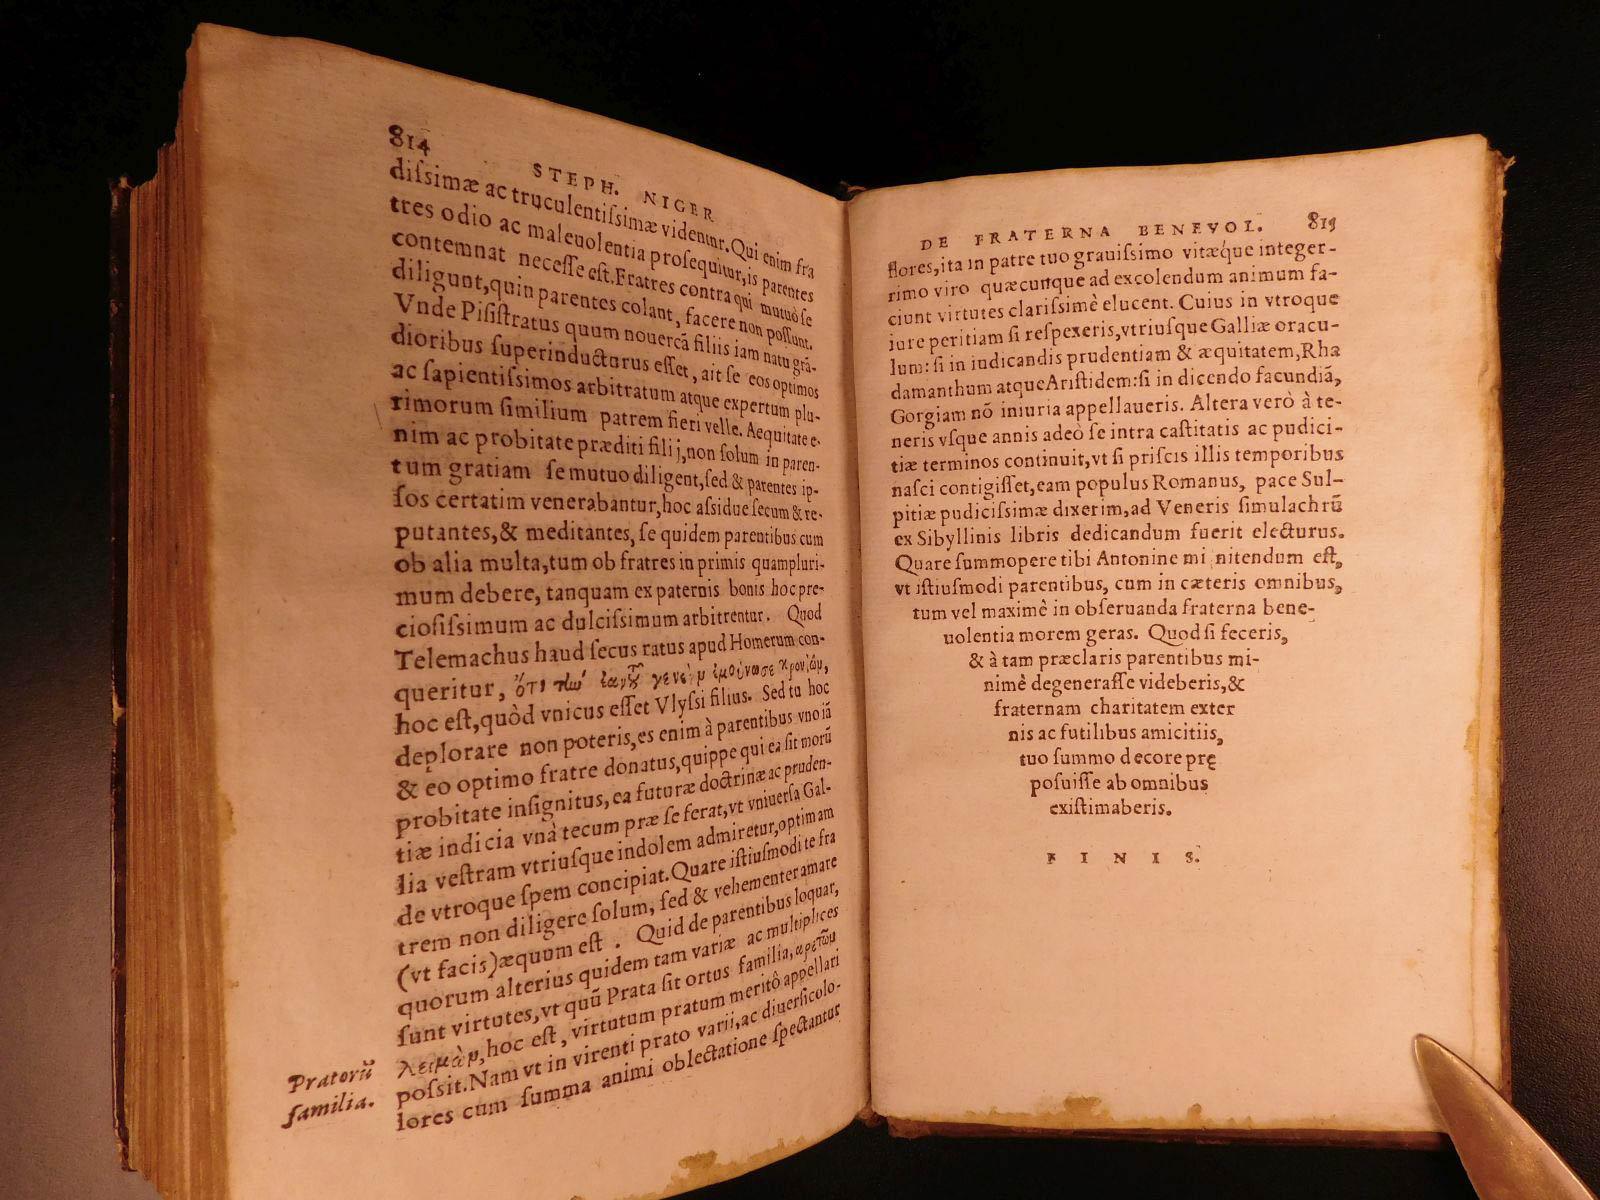 814
STEPH. NIGER
dissimæ ac truculentissimæ videntur. Qui enim fra
tres odio ac maleuolentia prosequitur, is parentes
contemnat necesse est. Fratres contra qui mutuò se
diligunt, quin parentes colant, facere non possunt.
Vnde Pisistratus quum nouercã filiis iam natu grã-
dioribus superinducturus esset, ait se eos optimos
ac sapientissimos arbitratum atque expertum plu-
rimorum similium patrem fieri velle. Aequitate e-
nim ac probitate præditi filij, non solum in paren-
tum gratiam se mutuo diligent, sed & parentes ip-
sos certatim venerabantur, hoc assidue secum & re-
putantes, & meditantes, se quidem parentibus cum
ob alia multa, tum ob fratres in primis quampluri-
mum debere, tanquam ex paternis bonis hoc pre-
ciosissimum ac dulcissimum arbitrentur. Quod
Telemachus haud secus ratus apud Homerum con-
queritur, ὅτι τὴν γενεὴν ἐμούνωσε κρονίων,
hoc est, quòd vnicus esset Vlyssi filius. Sed tu hoc
deplorare non poteris, es enim à parentibus vno iã
& eo optimo fratre donatus, quippe qui ea sit morũ
probitate insignitus, ea futuræ doctrinæ ac pruden-
tiæ indicia vnà tecum præ se ferat, vt vniuersa Gal-
lia vestram vtriusque indolem admiretur, optimam
de vtroque spem concipiat. Quare istiusmodi te fra
trem non diligere solum, sed & vehementer amare
(vt facis) æquum est. Quid de parentibus loquar,
quorum alterius quidem tam variæ ac multiplices
sunt virtutes, vt quũ Prata sit ortus familia, ἀρετῶν
λειμὼν, hoc est, virtutum pratum meritò appellari
possit. Nam vt in virenti prato varii, ac diuersicolo-
lores cum summa animi oblectatione spectantur
Pratorũ
familia.
DE FRATERNA BENEVOL. 815
flores, ita in patre tuo grauissimo vitæque integer-
rimo viro quæcunque ad excolendum animum fa-
ciunt virtutes clarissimè elucent. Cuius in vtroque
iure peritiam si respexeris, vtriusque Galliæ oracu-
lum: si in iudicandis prudentiam & æquitatem, Rha
damanthum atque Aristidem: si in dicendo facundiã,
Gorgiam nõ iniuria appellaueris. Altera verò à te-
neris vsque annis adeò se intra castitatis ac pudici-
tiæ terminos continuit, vt si priscis illis temporibus
nasci contigisset, eam populus Romanus, pace Sul-
pitiæ pudicissimæ dixerim, ad Veneris simulachrũ
ex Sibyllinis libris dedicandum fuerit electurus.
Quare summopere tibi Antonine mi nitendum est,
vt istiusmodi parentibus, cum in cæteris omnibus,
tum vel maximè in obseruanda fraterna bene-
uolentia morem geras. Quod si feceris,
& à tam præclaris parentibus mi-
nimè degenerasse videberis, &
fraternam charitatem exter
nis ac futilibus amicitiis,
tuo summo decore prę
posuisse ab omnibus
existimaberis.
FINIS.